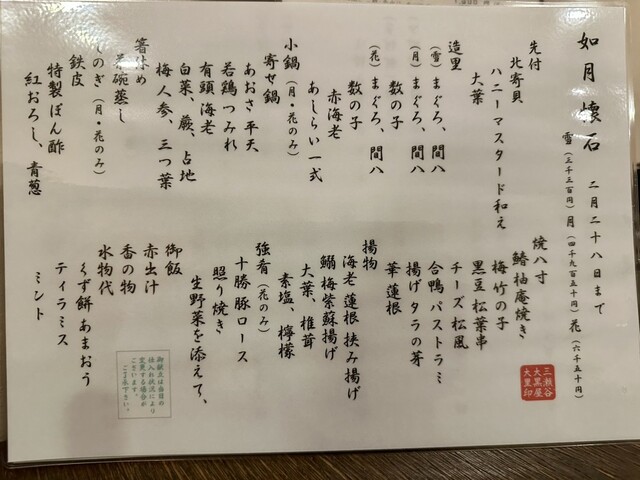 如月懐石 二月二十八日まで
雪(三千三百円)月(四千九百五十円)花(六千五十円)
先付
北寄貝
ハニーマスタード和え
大葉
造里
(雪)まぐろ、間八
(月)まぐろ、間八
数の子
(花)まぐろ、間八
数の子
赤海老
あしらい一式
小鍋(月・花のみ)
寄せ鍋
あおさ平天
若鶏つみれ
有頭海老
白菜、蕨、占地
梅人参、三つ葉
箸休め
茶碗蒸し
しのぎ(月・花のみ)
鉄皮
特製ぽん酢
紅おろし、青葱
焼八寸
鰆柚庵焼き
梅竹の子
黒豆松葉串
チーズ松風
合鴨パストラミ
揚げタラの芽
華蓮根
揚物
海老蓮根挟み揚げ
鰯梅紫蘇揚げ
大葉、椎茸
素塩、檸檬
強肴(花のみ)
十勝豚ロース
照り焼き
生野菜を添えて、
御飯
赤出汁
香の物
水物代
くず餅あまおう
ティラミス
ミント
御献立は当日の
仕入れ状況により
変更する場合が
ございます。
ご了承下さい。
三瀬谷
大黒屋
大里印